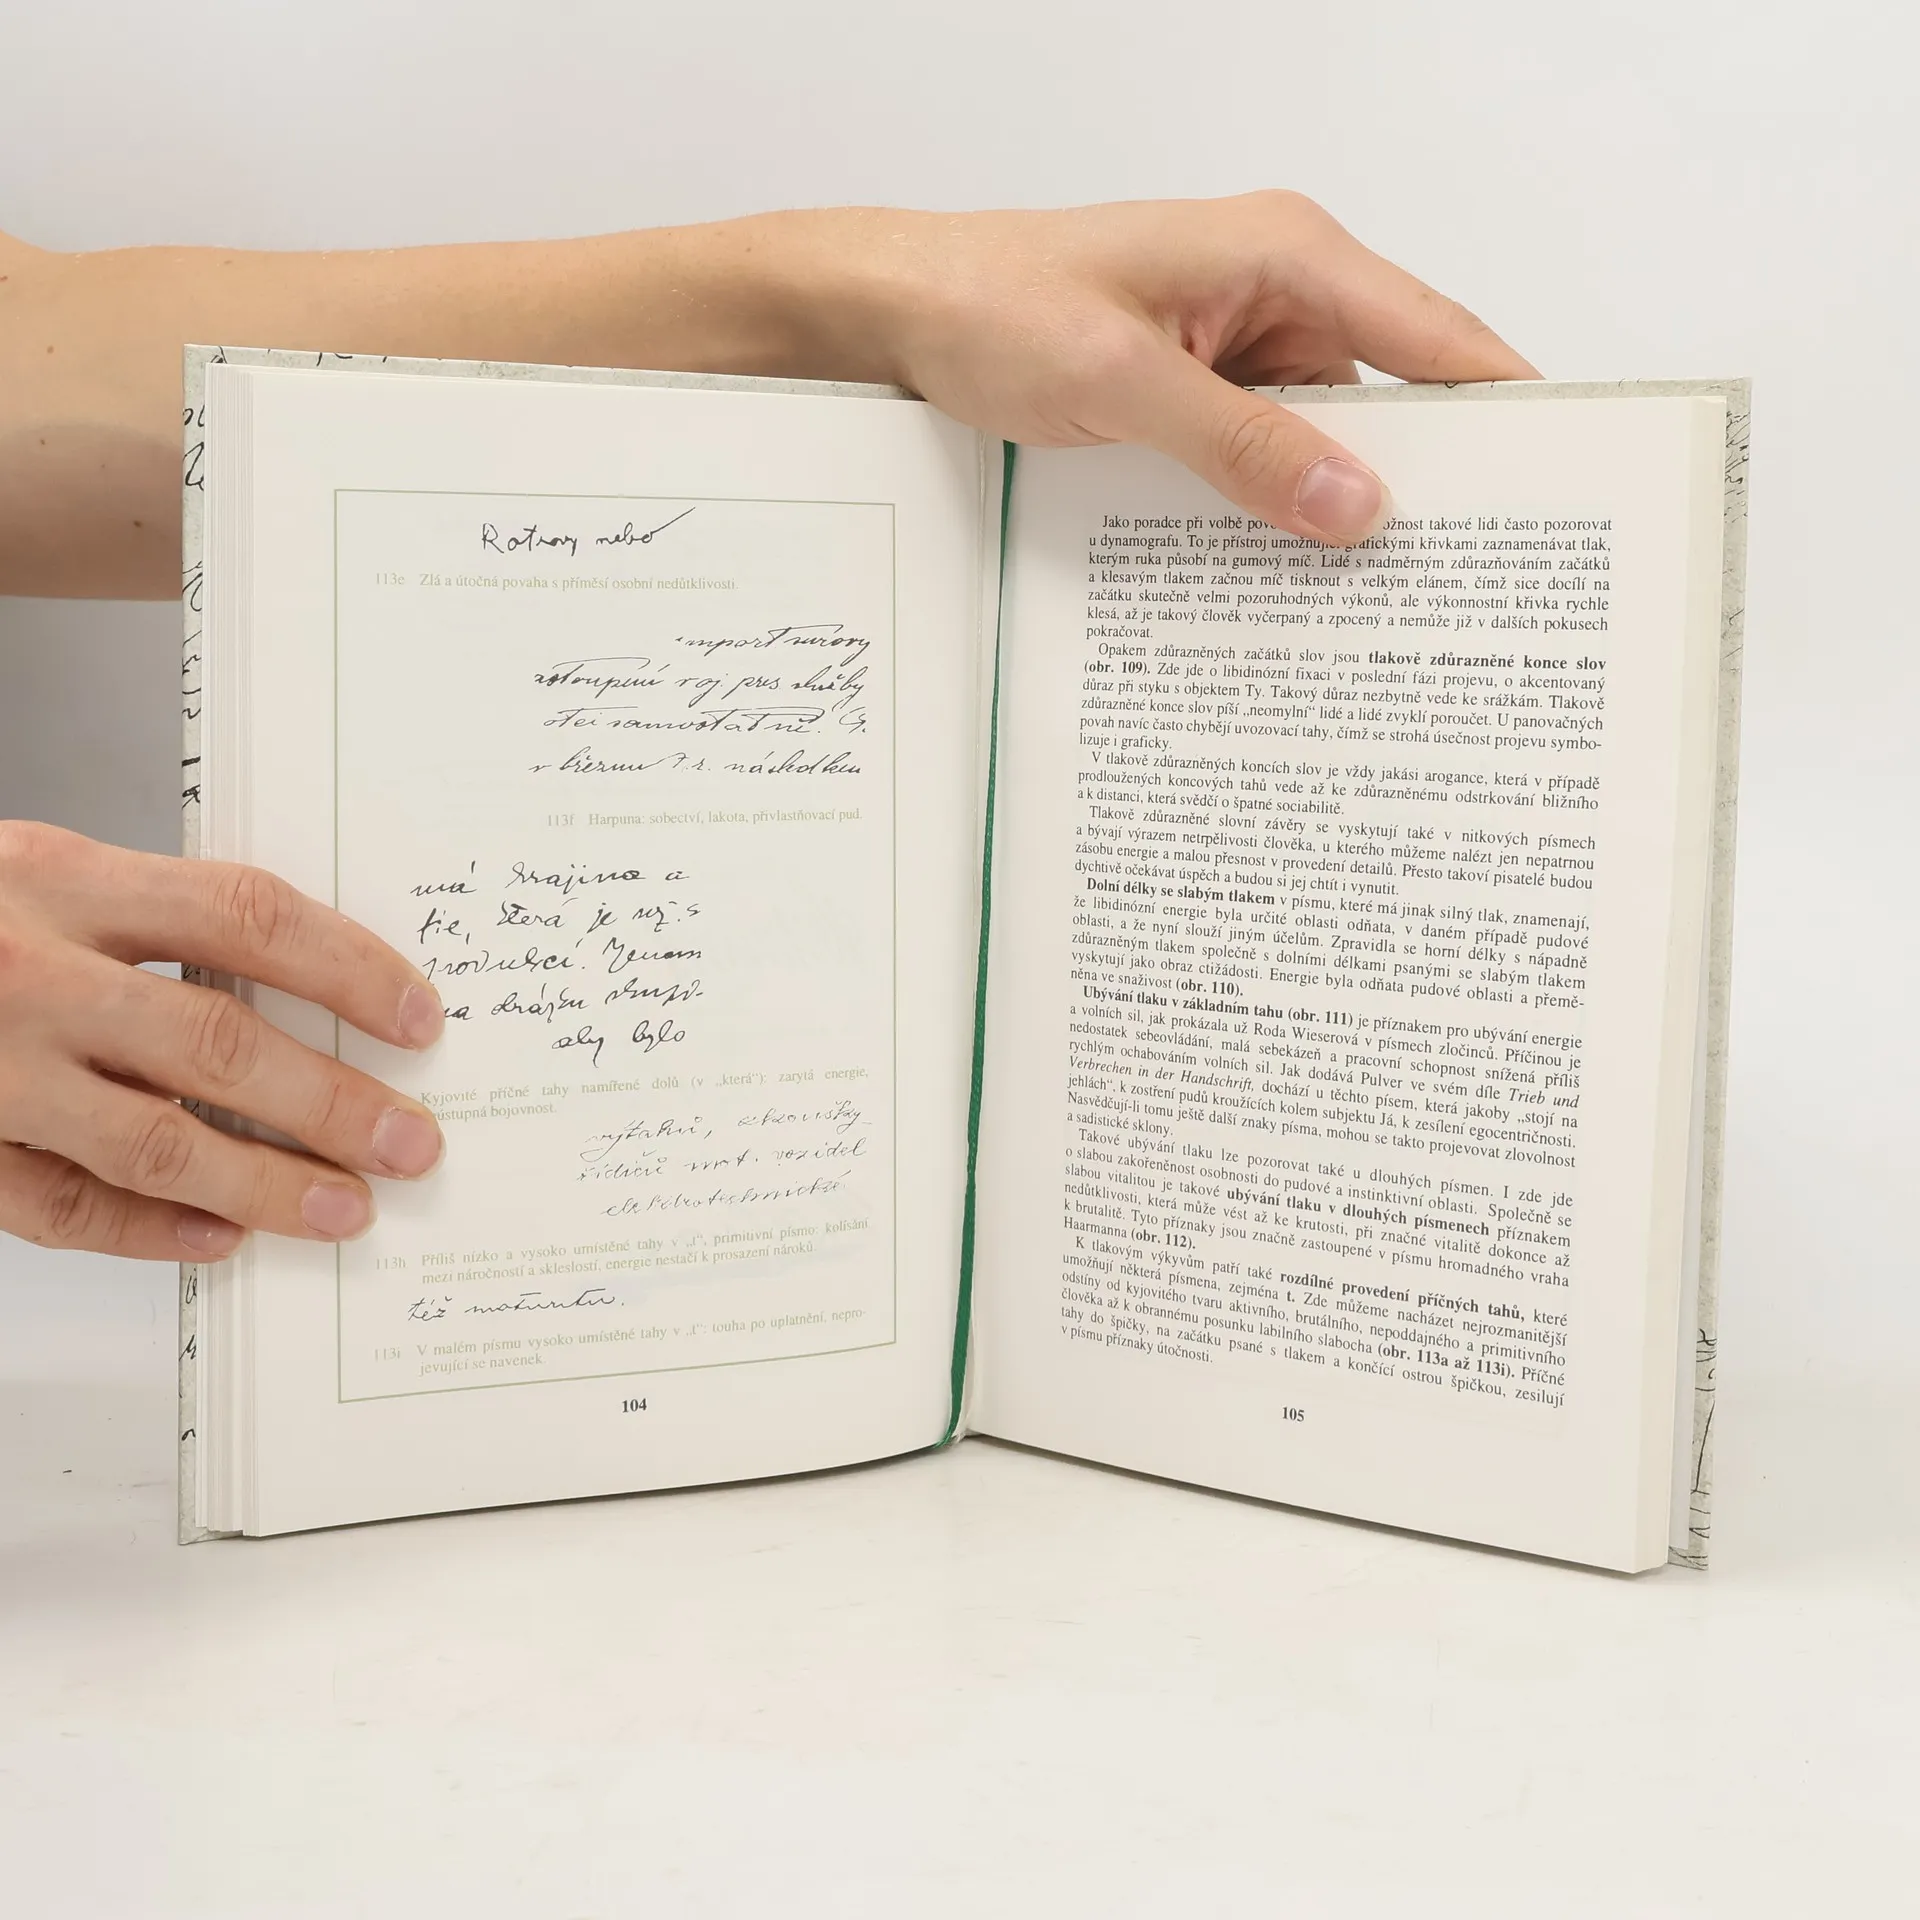 Rotrovy nebo
113e Zlá a útočná povaha s příměsí osobní nedůtklivosti.
import surovy
zastoupení raj. pres. služby
otci samostatně. Čs.
v březnu t.r. následkem
113f Harpuna: sobectví, lakota, přivlastňovací pud.
má krajina a
fie, která je
produkcí.
na dráhu
aby bylo
Kyjovité příčné tahy namířené dolů (v „která“): zarytá energie,
ústupná bojovnost.
výtahů,
řidičů mot. vozidel
elektrotechnické
113h Příliš nízko a vysoko umístěné tahy v „t“, primitivní písmo: kolísání
mezi náročností a skleslostí, energie nestačí k prosazení nároků.
též maturitu.
113i V malém písmu vysoko umístěné tahy v „t“: touha po uplatnění, nepro-
jevující se navenek.
104
Jako poradce při volbě pov ožnost takové lidi často pozorovat
u dynamografu. To je přístroj umožňující grafickými křivkami zaznamenávat tlak,
kterým ruka působí na gumový míč. Lidé s nadměrným zdůrazňováním začátků
a klesavým tlakem začnou míč tisknout s velkým elánem, čímž sice docílí na
začátku skutečně velmi pozoruhodných výkonů, ale výkonnostní křivka rychle
klesá, až je takový člověk vyčerpaný a zpocený a nemůže již v dalších pokusech
pokračovat.
Opakem zdůrazněných začátků slov jsou tlakově zdůrazněné konce slov
(obr. 109). Zde jde o libidinózní fixaci v poslední fázi projevu, o akcentovaný
důraz při styku s objektem Ty. Takový důraz nezbytně vede ke srážkám. Tlakově
zdůrazněné konce slov píší „neomylní“ lidé a lidé zvyklí poroučet. U panovačných
povah navíc často chybějí uvozovací tahy, čímž se strohá úsečnost projevu symbo-
lizuje i graficky.
V tlakově zdůrazněných koncích slov je vždy jakási arogance, která v případě
prodloužených koncových tahů vede až ke zdůrazněnému odstrkování bližního
a k distanci, která svědčí o špatné sociabilitě.
Tlakově zdůrazněné slovní závěry se vyskytují také v nitkových písmech
a bývají výrazem netrpělivosti člověka, u kterého můžeme nalézt jen nepatrnou
zásobu energie a malou přesnost v provedení detailů. Přesto takoví pisatelé budou
dychtivě očekávat úspěch a budou si jej chtít i vynutit.
Dolní délky se slabým tlakem v písmu, které má jinak silný tlak, znamenají,
že libidinózní energie byla určité oblasti odňata, v daném případě pudové
oblasti, a že nyní slouží jiným účelům. Zpravidla se horní délky s nápadně
zdůrazněným tlakem společně s dolními délkami psanými se slabým tlakem
vyskytují jako obraz ctižádosti. Energie byla odňata pudové oblasti a přemě-
něna ve snaživost (obr. 110).
Ubývání tlaku v základním tahu (obr. 111) je příznakem pro ubývání energie
a volních sil, jak prokázala už Roda Wieserová v písmech zločinců. Příčinou je
nedostatek sebeovládání, malá sebekázeň a pracovní schopnost snížená příliš
rychlým ochabováním volních sil. Jak dodává Pulver ve svém díle Trieb und
Verbrechen in der Handschrift, dochází u těchto písem, která jakoby „stojí na
jehlách“, k zostření pudů kroužících kolem subjektu Já, k zesílení egocentričnosti.
Nasvědčují-li tomu ještě další znaky písma, mohou se takto projevovat zlovolnost
a sadistické sklony.
Takové ubývání tlaku lze pozorovat také u dlouhých písmen. I zde jde
o slabou zakořeněnost osobnosti do pudové a instinktivní oblasti. Společně se
slabou vitalitou je takové ubývání tlaku v dlouhých písmenech příznakem
nedůtklivosti, která může vést až ke krutosti, při značné vitalitě dokonce až
k brutalitě. Tyto příznaky jsou značně zastoupené v písmu hromadného vraha
Haarmanna (obr. 112).
K tlakovým výkyvům patří také rozdílné provedení příčných tahů, které
umožňují některá písmena, zejména t. Zde můžeme nacházet nejrozmanitější
odstíny od kyjovitého tvaru aktivního, brutálního, nepoddajného a primitivního
člověka až k obrannému posunku labilního slabocha (obr. 113a až 113i). Příčné
tahy do špičky, na začátku psané s tlakem a končící ostrou špičkou, zesilují
v písmu příznaky útočnosti.
105